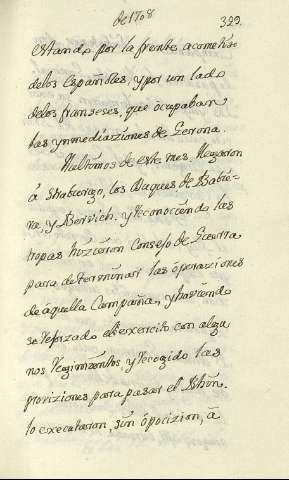 de 1708
399.
estando por la frente acometido
delos españoles, y por un lado
delos franseses, que ocupaban
las ynmediaziones de Gerona.
Ultimos de este mes, llegaron
á Strasburgo, los Duques de Babie-
ra, y Bervich. y reconociendo las
tropas hizieron Consejo de Guerra
para determinar las óperaziones
de aquella Campaña, y haviendo
se reforzado el exercito con algu
nos regimientos, y recogido las
provisiones para pasar el Rhin.
lo executaron, sin óposizion, á